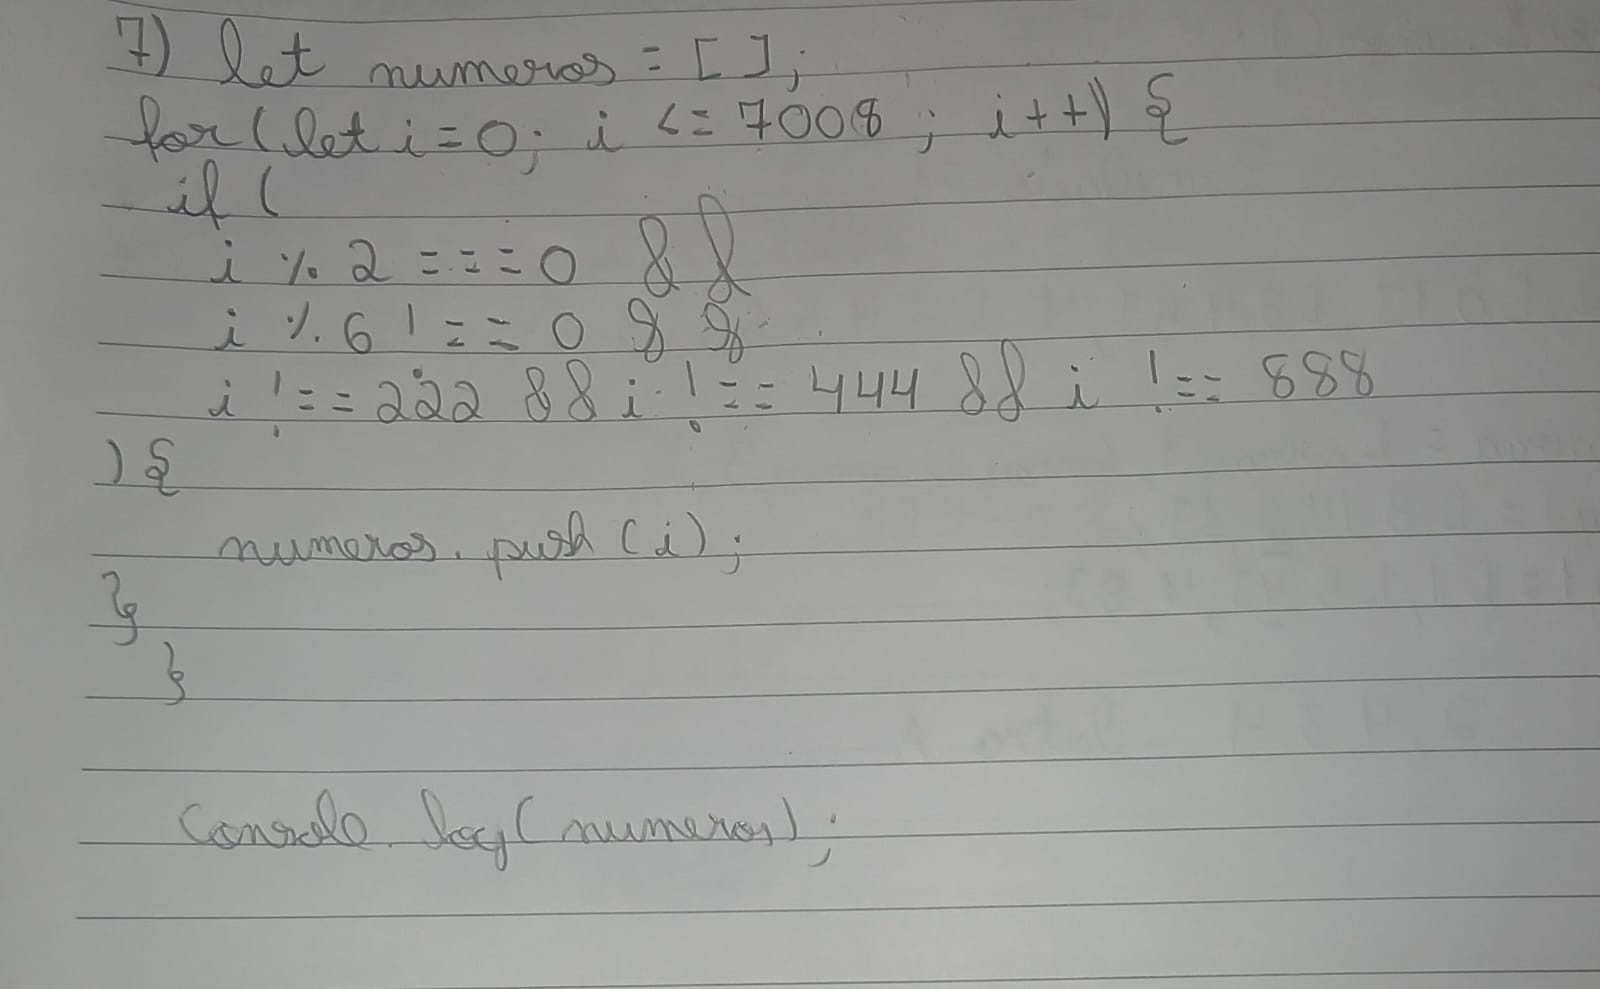 7) let numeros = [ ];
for(let i=0; i <= 7008 ; i++) {
if (
i % 2 === 0 &&
i % 6 !== 0 &&
i !== 222 && i !== 444 && i !== 888
) {
numeros.push(i);
}
}
Console.log(numeros);